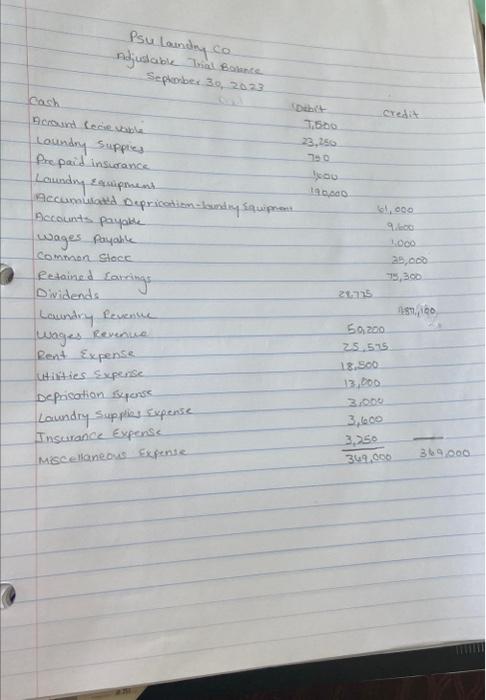 Psu Laundry CO
Adjustable Trial Balance
September 30, 2023
Debit Credit
Cash 7,500
Account Recievable 23,250
Laundry Supplies 750
Prepaid insurance
Laundry Equipment 190,000
Accumulated Deprication-laundry Equipment 61,000
Accounts payable 9,600
Wages Payable 1,000
Common Stock 35,000
Retained Earrings 75,300
Dividends
Laundry Revenue
Wages Revenue 50,200
Rent Expense 25,575
Utilities Expense 18,500
Deprication Expense 13,000
Laundry Supplies Expense 3,000
Insurance Expense 3,600
Miscellaneous Expense 3,250
369,000 369,000